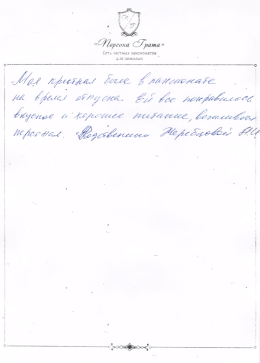 «Персона Грата»
Сеть частных пансионатов
для пожилых
Моя престарая была в пансионате
на время отпуска. Ей все понравилось
вкусное и хорошее питание, вежливый
персонал. Родственники Жеребцовой